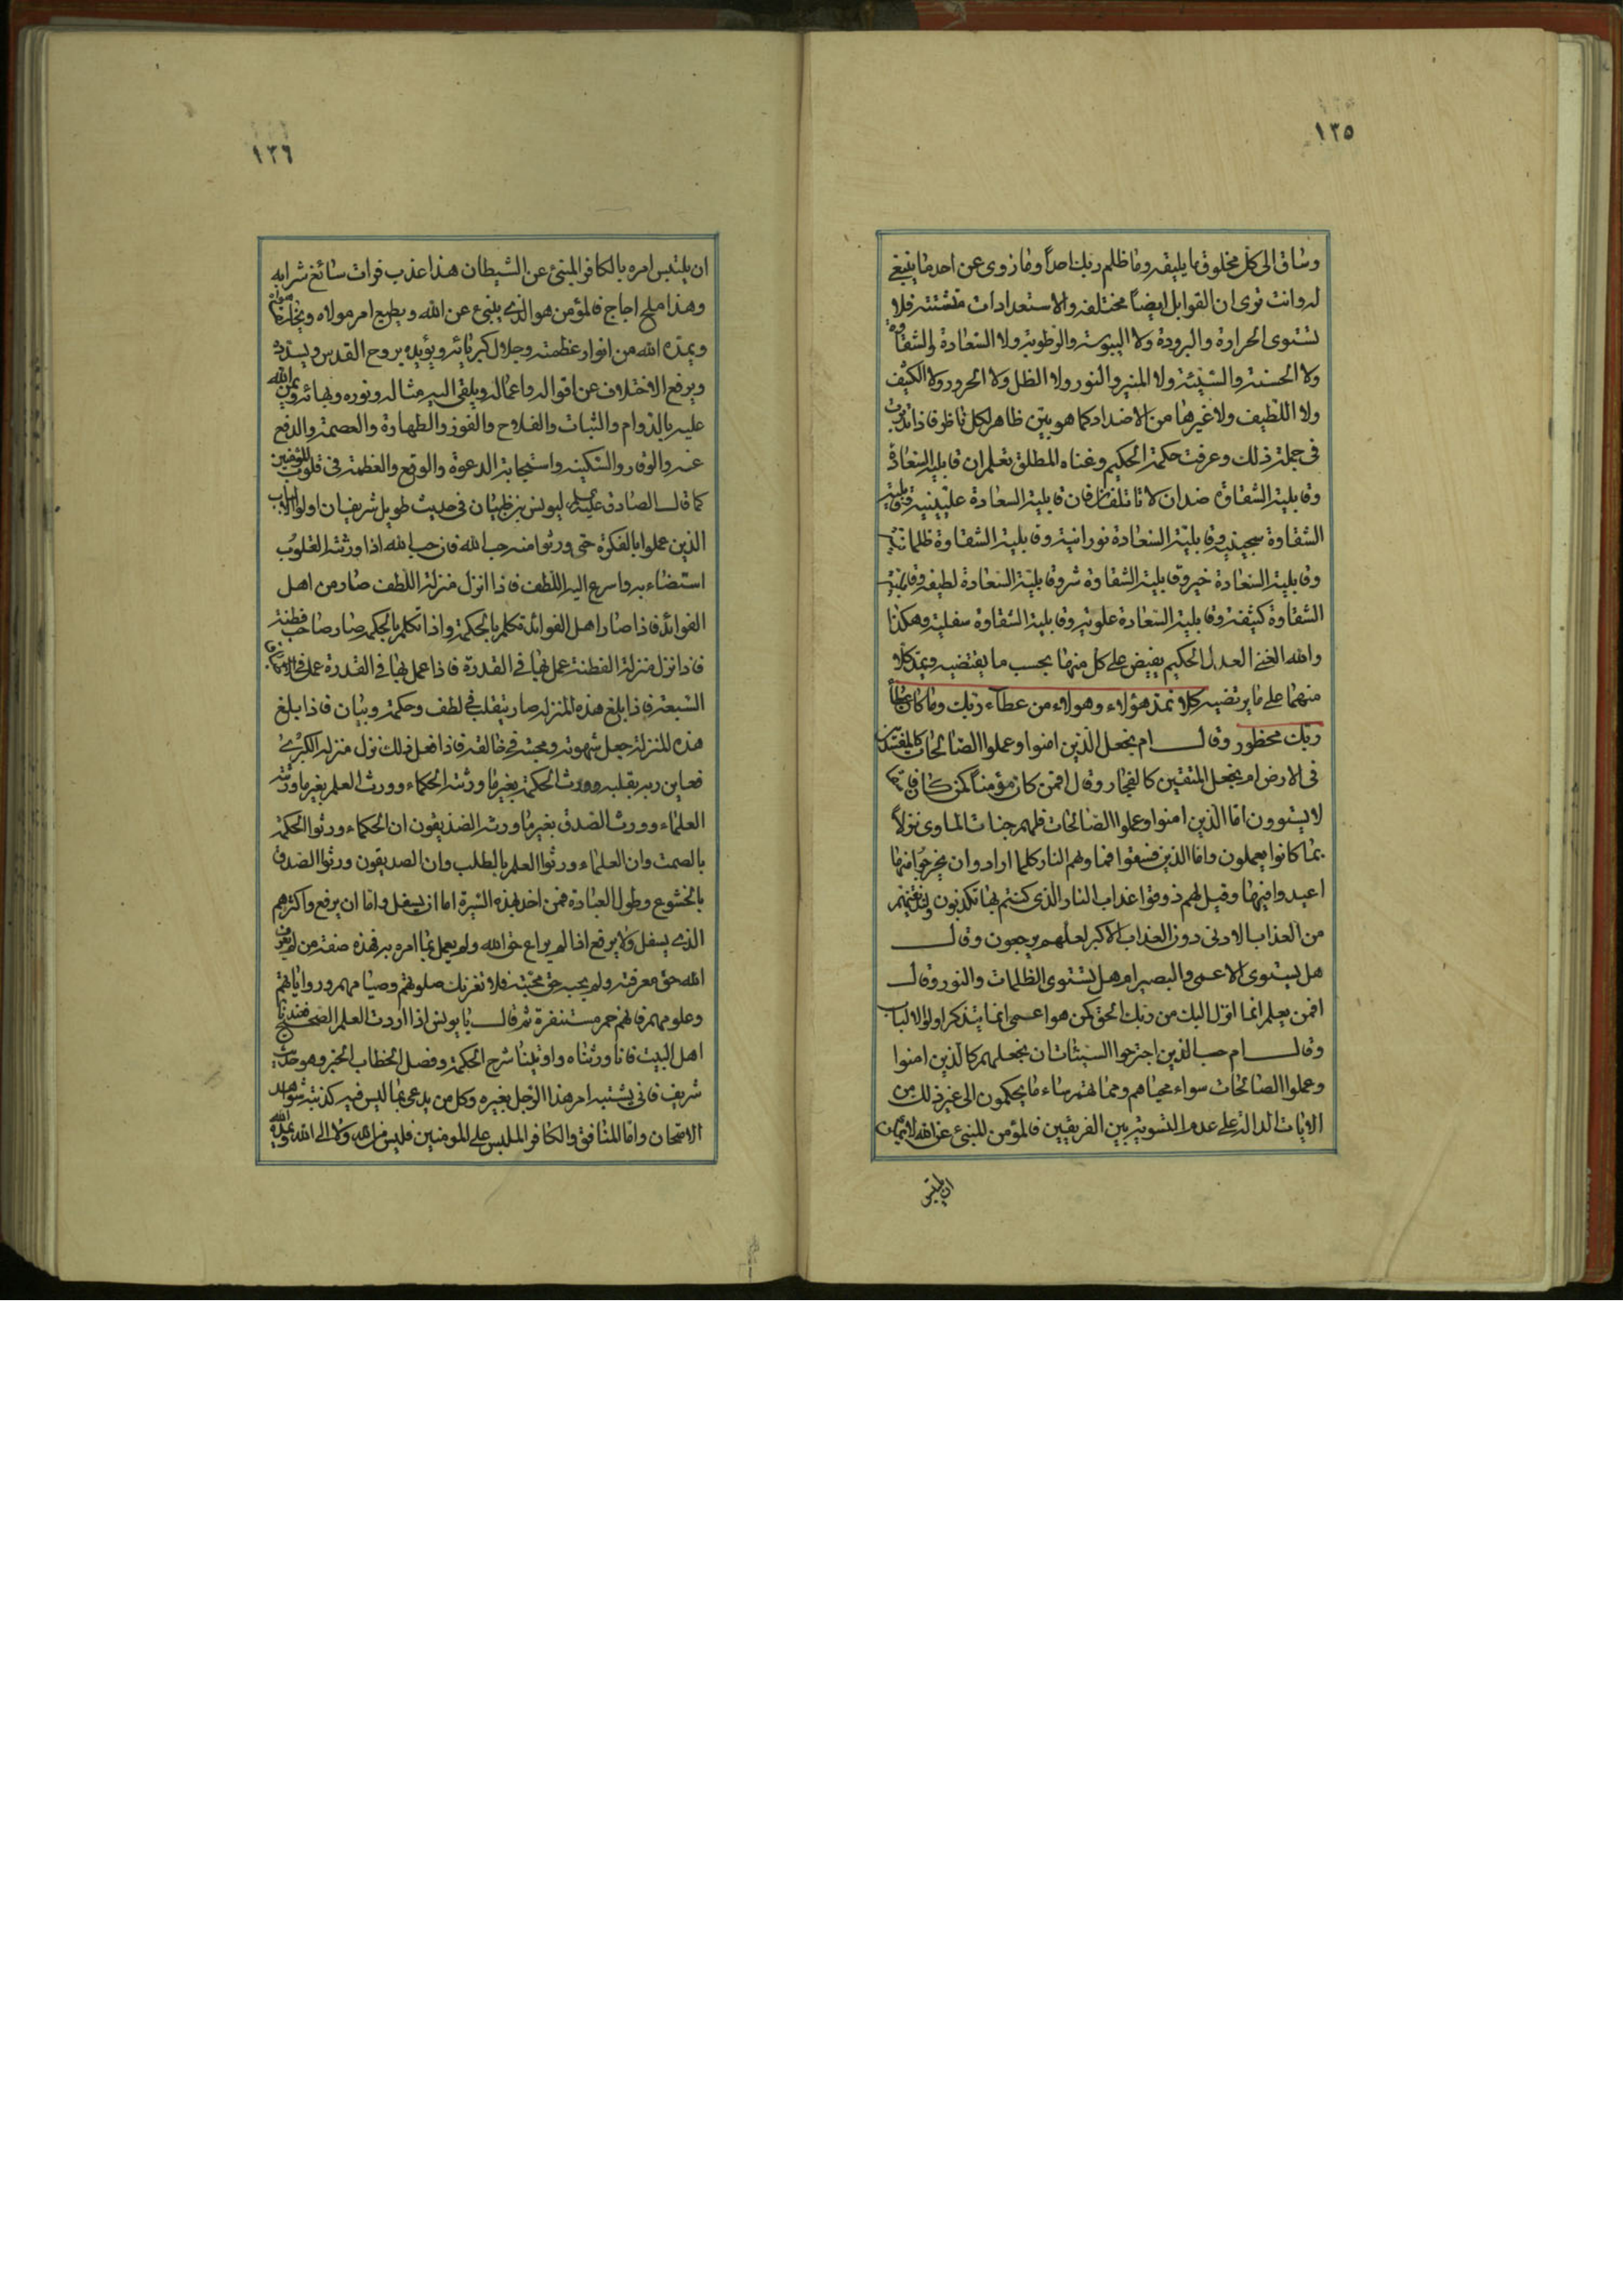 ١٣٥
وساق الى كل مخلوق ما يليقه وما ظلم ربك احداً وما زوى عن احد ما ينبغي
له وانت ترى ان القوابل ايضاً مختلفه والاستعدادات متشتته فلا
تستوى الحرارة والبرودة ولا اليبوسته والرطوبة ولا السعادة والشقاوة
ولا الحسنة والسيئة ولا المنير والنور ولا الظل ولا الحرور ولا الكثيف
ولا اللطيف ولا غيرها من الاضداد كما هو بيّن ظاهر لكل ناظر فاذا تدبرت
فى جملة ذلك وعرفت حكمة الحكيم وغناه المطلق تعلم ان قابلية السعادة
وقابلية الشقاوة ضدان لا تاتلفان فان قابلية السعادة عليينية وقابلية
الشقاوة سجينية وقابلية السعادة نورانية وقابلية الشقاوة ظلمانية
وقابلية السعادة خير وقابلية الشقاوة شر وقابلية السعادة لطيفة وقابلية
الشقاوة كثيفة وقابلية السعادة علوية وقابلية الشقاوة سفلية وهكذا
والله الغنى العدل الحكيم يفيض على كل منهما بحسب ما يقتضيه ويمد كلا
منهما على ما يرتضيه كلا نمد هؤلاء وهولاء من عطاء ربك وما كان عطاء
ربك محظور وقال ام نجعل الذين امنوا وعملوا الصالحات كالمفسدين
فى الارض ام نجعل المتقين كالفجار وقال افمن كان مؤمناً كمن كان فاسقا
لا يستوون امّا الذين امنوا وعملوا الصالحات فلهم جنات الماوى نزلاً
بما كانوا يعملون واما الذين فسقوا فماويهم النار كلما ارادوا ان يخرجوا منها
اعيدوا فيها وقيل لهم ذوقوا عذاب النار الذى كنتم بها تكذبون ولنذيقنهم
من العذاب الادنى دون العذاب الاكبر لعلهم يرجعون وقال
هل يستوى الاعمى والبصير ام هل تستوى الظلمات والنور وقال
افمن يعلم انما انزل اليك من ربك الحق كمن هو اعمى انما يتذكر اولوا الالباب
وقال ام حسب الذين اجترحوا السيئات ان نجعلهم كالذين امنوا
وعملوا الصالحات سواء محياهم ومماتهم ساء ما يحكمون الى غير ذلك من
الايات الدالة على عدم التسوية بين الفريقين فالمؤمن المنبئ عن الله لا يمكن
ان يلتبس
١٣٦
ان يلتبس امره بالكافر المنبئ عن الشيطان هذا عذب فرات سائغ شرابه
وهذا ملح اجاج فالمؤمن هو الذى ينبئ عن الله ويطيع امر مولاه ويخالف هواه
ويمده الله من انوار عظمته وجلال كبريائه ويؤيده بروح القدس ويسدده
ويرفع الاختلاف عن اقواله واعماله ويلقى اليه مثاله ونوره وبهائه ويمن الله
عليه بالدوام والثبات والفلاح والفوز والطهارة والعصمة والدفع
عنه والوقار والسكينه واستجابة الدعوة والوقع والعظمة فى قلوب المؤمنين
كما قال الصادق عليه السلام ليونس بن ظبيان فى حديث طويل شريف ان اولوا الالباب
الذين عملوا بالفكرة حتى ورثوا منه حب الله فان حب الله اذا ورثته القلوب
استضاء به واسرع اليه اللطف فاذا انزل منزلة اللطف صار من اهل
الفوائد فاذا صار اهل الفوائد تكلم بالحكمة واذا تكلم بالحكمة صار صاحب فطنة
فاذا نزل منزلة الفطنة عمل بها فى القدرة فاذا عمل بها فى القدرة عمل فى الاطباق
السبعة فاذا بلغ هذه المنزلة صار يتقلب فى لطف وحكمة وبيان فاذا بلغ
هذه المنزلة جعل شهوته ومحبته فى خالقه فاذا فعل ذلك نزل منزلة الكبرى
فعاين ربه بقلبه وورث الحكمة بغير ما ورثته الحكماء وورث العلم بغير ما ورثته
العلماء وورث الصدق بغير ما ورثه الصديقون ان الحكماء ورثوا الحكمة
بالصمت وان العلماء ورثوا العلم بالطلب وان الصديقون ورثوا الصدق
بالخشوع وطول العبادة فمن اخذ بهذه السيرة اما ان يسفل واما ان يرفع واكثرهم
الذى يسفل ولا يرفع اذا لم يراع حق الله ولم يعمل بما امره به فهذه صفة من لم يعرف
الله حق معرفته ولم يحبه حق محبته فلا تغرنك صلوتهم وصيامهم وروايانهم
وعلومهم فانهم حمر مستنفرة ثم قال يا يونس اذا اردت العلم الصحيح فعندنا
اهل البيت فانا ورثناه واوتينا شرح الحكمة وفصل الخطاب الخبر وهو حديث
شريف فانى يشتبه امر هذا الرجل بغيره وكل من يدعى بما ليس فيه كذبته شواهد
الامتحان واما المنافق والكافر الملبس على المومنين فليس من الله ولا الى الله